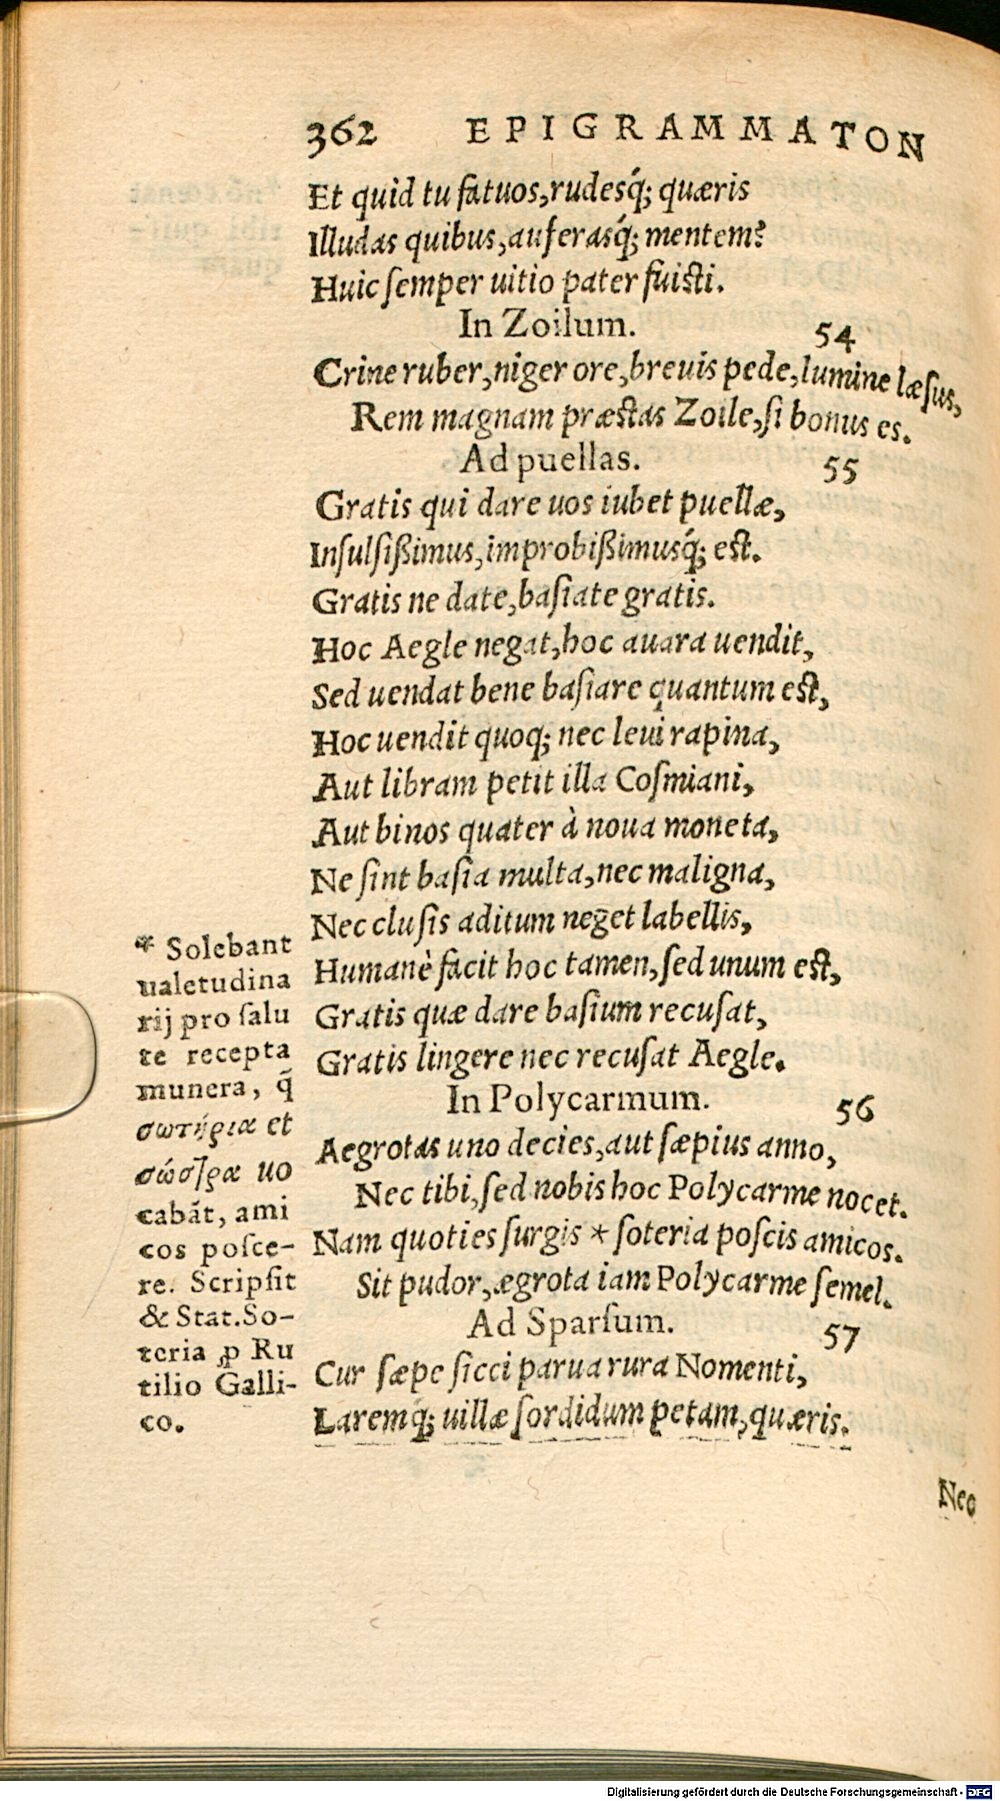 362 EPIGRAMMATON
Et quid tu fatuos, rudesq́; quæris
Illudas quibus, auferasq́; mentem?
Huic ſemper uitio pater fuiſti.
In Zoilum. 54
Crine ruber, niger ore, breuis pede, lumine læſus,
Rem magnam præſtas Zoile, ſi bonus es.
Ad puellas. 55
Gratis qui dare uos iubet puellæ,
Inſulſißimus, improbißimusq́; eſt.
Gratis ne date, baſiate gratis.
Hoc Aegle negat, hoc auara uendit,
Sed uendat bene baſiare quantum eſt,
Hoc uendit quoq; nec leui rapina,
Aut libram petit illa Coſmiani,
Aut binos quater à noua moneta,
Ne ſint baſia multa, nec maligna,
Nec cluſis aditum neget labellis,
Humanè facit hoc tamen, ſed unum eſt,
Gratis quæ dare baſium recuſat,
Gratis lingere nec recuſat Aegle.
In Polycarmum. 56
Aegrotas uno decies, aut ſæpius anno,
Nec tibi, ſed nobis hoc Polycarme nocet.
Nam quoties ſurgis * ſoteria poſcis amicos.
Sit pudor, ægrota iam Polycarme ſemel.
Ad Sparſum. 57
Cur ſæpe ſicci parua rura Nomenti,
Laremq́; uillæ ſordidum petam, quæris.
Nec
* Solebant
ualetudina
rij pro ſalu
te recepta
munera, q̃
σωτήρια et
σώστρα uo
cabãt, ami
cos poſce-
re. Scripſit
& Stat. So-
teria ꝓ Ru
tilio Galli-
co.
Digitalisierung gefördert durch die Deutsche Forschungsgemeinschaft - DFG